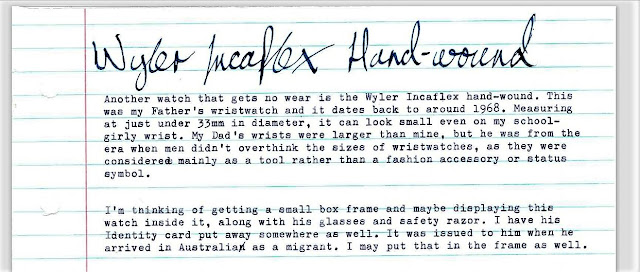 Wyler Incaflex Hand-wound
Another watch that gets no wear is the Wyler Incaflex hand-wound. This
was my Father's wristwatch and it dates back to around 1968. Measuring
at just under 33mm in diameter, it can look small even on my school-
girly wrist. My Dad's wrists were larger than mine, but he was from the
era when men didn't overthink the sizes of wristwatches, as they were
considered mainly as a tool rather than a fashion accessory or status
symbol.
I'm thinking of getting a small box frame and maybe displaying this
watch inside it, along with his glasses and safety razor. I have his
Identity card put away somewhere as well. It was issued to him when he
arrived in Australia as a migrant. I may put that in the frame as well.